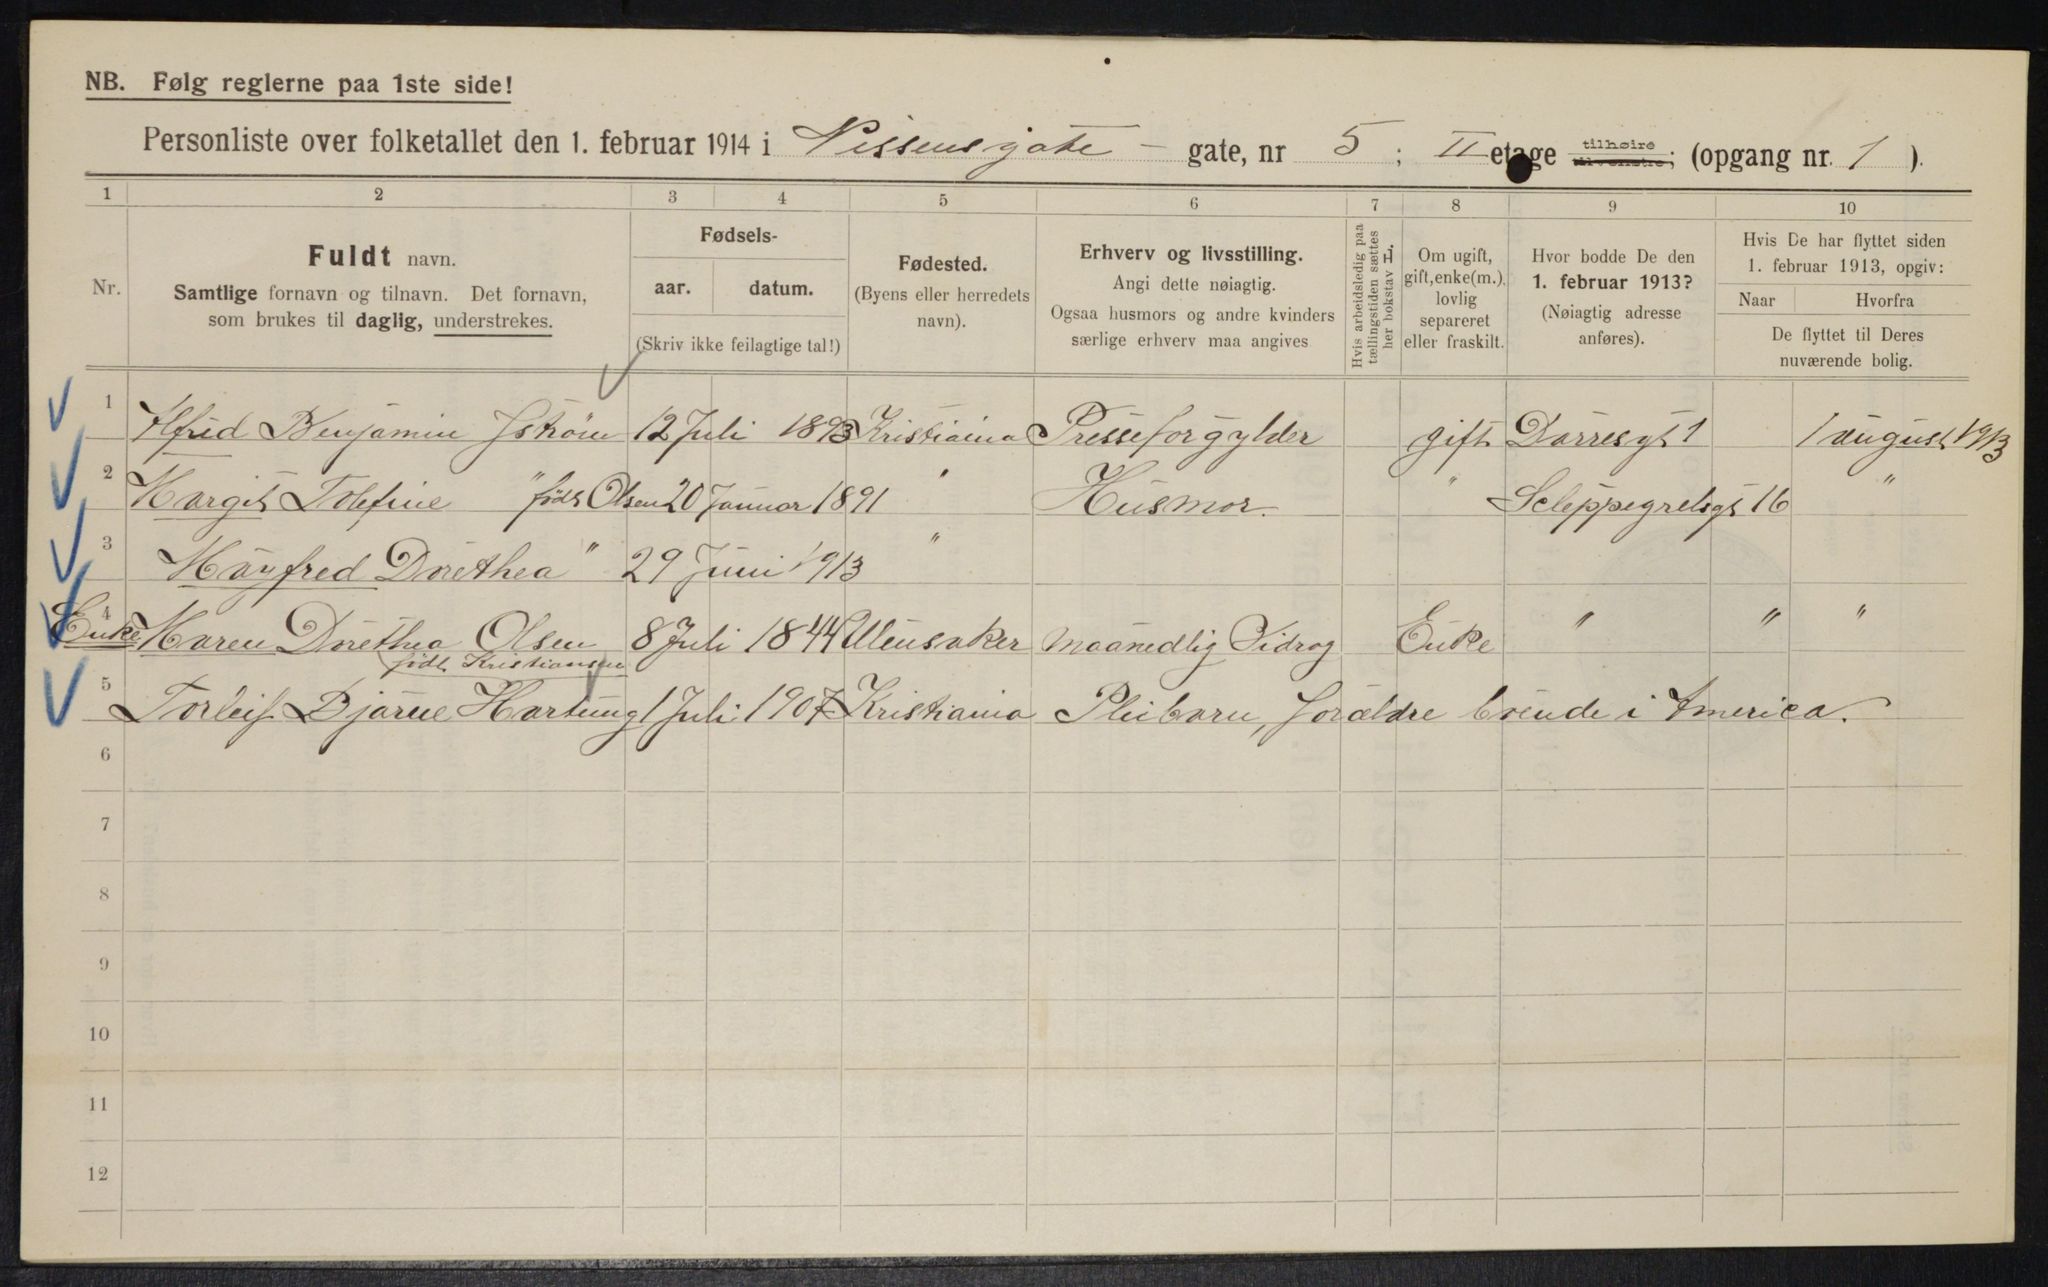 NB. Følg reglerne paa 1ste side!
Personliste over folketallet den 1. februar 1914 i Nissensgate - gate, nr 5; II etage tilhøire tilvenstre; (opgang nr. 1 ).
1 2 3 4 5 6 7 8 9 10
Nr.
Fuldt navn.
Samtlige fornavn og tilnavn. Det fornavn,
som brukes til daglig, understrekes.
Fødsels-
aar. datum.
(Skriv ikke feilagtige tal!)
Fødested.
(Byens eller herredets
navn).
Erhverv og livsstilling.
Angi dette nøiagtig.
Ogsaa husmors og andre kvinders
særlige erhverv maa angives
Hvis arbeidsledig paa
tællingstiden sættes
her bokstav L.
Om ugift,
gift, enke(m.),
lovlig
separeret
eller fraskilt.
Hvor bodde De den
1. februar 1913?
(Nøiagtig adresse
anføres).
Hvis De har flyttet siden
1. februar 1913, opgiv:
Naar Hvorfra
De flyttet til Deres
nuværende bolig.
1 Alfred Benjamin 12 Juli 1893 Kristiania Presseforgylder gift Darresgt 1 1 august 1913
2 Margit " født Olsen 20 Januar 1891 " Husmor. " Scleppegrelsgt 16 "
3 Mayfred Dorethea " 29 Juni 1913 "
4 Enke Maren Dorethea Olsen 8 Juli 1844 Ullensaker Maanedlig Bidrag Enke " " "
født Kristiansen
5 Torleif Bjarne Hartung 1 Juli 1907 Kristiania Pleibarn, forældre boende i America.
6
7
8
9
10
11
12